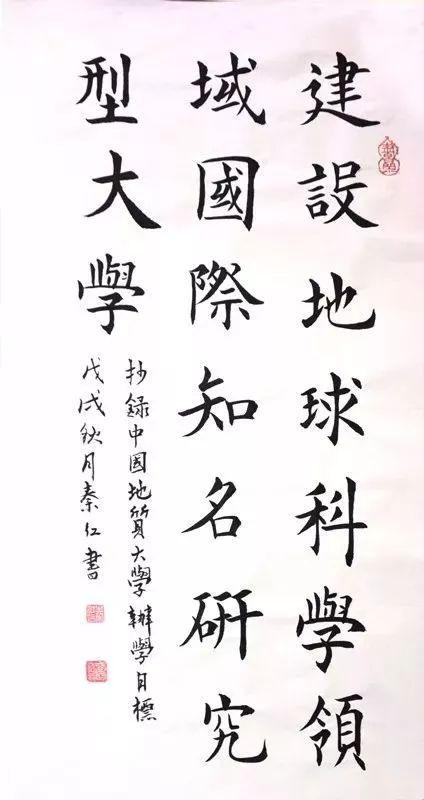 建設地球科學領
域國際知名研究
型大學
抄錄中国地質大學辦學目標
戊戌秋月秦仁書